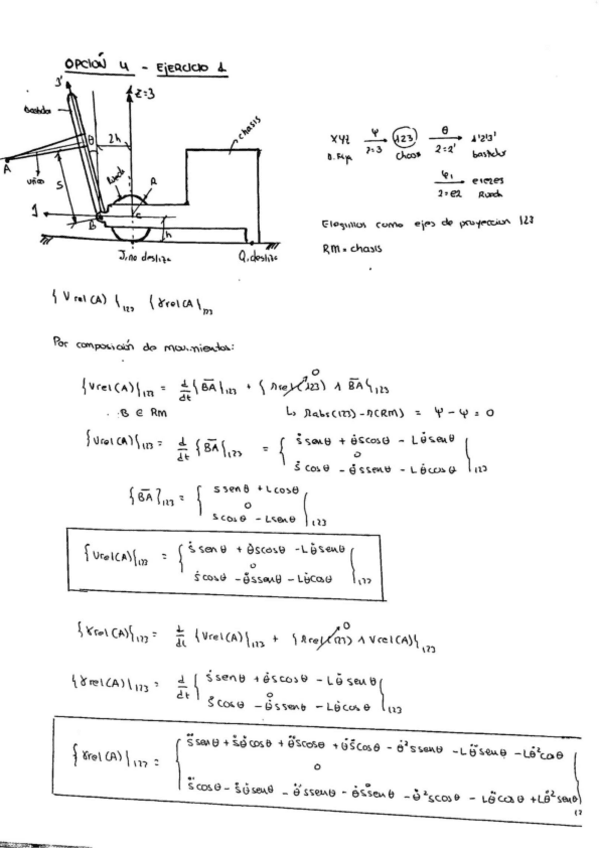 OPCIÓN 4 - EJERCICIO 1
1'
z=3
bastidor
θ
2h
chasis
A
uñas
S
Rueda
R
1
B
C
h
J, no desliza
Q, desliza
XYZ ψ→ 123 θ→ 1'2'3'
z=3 chasis 2=2' bastidor
φ₁→ e1e2e3
2=e2 Rueda
Elegimos como ejes de proyeccion 123
RM = chasis
{Vrel(A)}₁₂₃ {γrel(A)}₁₂₃
Por composición de movimientos:
{Vrel(A)}₁₂₃ = d/dt {BA}₁₂₃ + {Ωrel(123) ∧ BA}₁₂₃
0
B ∈ RM ↳ Ωabs(123) - Ω(RM) = ψ - ψ = 0
{Vrel(A)}₁₂₃ = d/dt {BA}₁₂₃ = { ṡ senθ + θ̇s cosθ - Lθ̇ senθ
0
ṡ cosθ - θ̇s senθ - Lθ̇ cosθ }₁₂₃
{BA}₁₂₃ = { s senθ + L cosθ
0
s cosθ - L senθ }₁₂₃
{Vrel(A)}₁₂₃ = { ṡ senθ + θ̇s cosθ - Lθ̇ senθ
0
ṡ cosθ - θ̇s senθ - Lθ̇ cosθ }₁₂₃
{γrel(A)}₁₂₃ = d/dt {Vrel(A)}₁₂₃ + {Ωrel(123) ∧ Vrel(A)}₁₂₃
0
{γrel(A)}₁₂₃ = d/dt { ṡ senθ + θ̇s cosθ - Lθ̇ senθ
0
ṡ cosθ - θ̇s senθ - Lθ̇ cosθ }₁₂₃
{γrel(A)}₁₂₃ = { s̈ senθ + ṡθ̇ cosθ + θ̈s cosθ + θ̇ṡ cosθ - θ̇² s senθ - Lθ̈ senθ - Lθ̇² cosθ
0
s̈ cosθ - ṡθ̇ senθ - θ̈s senθ - θ̇ṡ senθ - θ̇² s cosθ - Lθ̈ cosθ + Lθ̇² senθ }